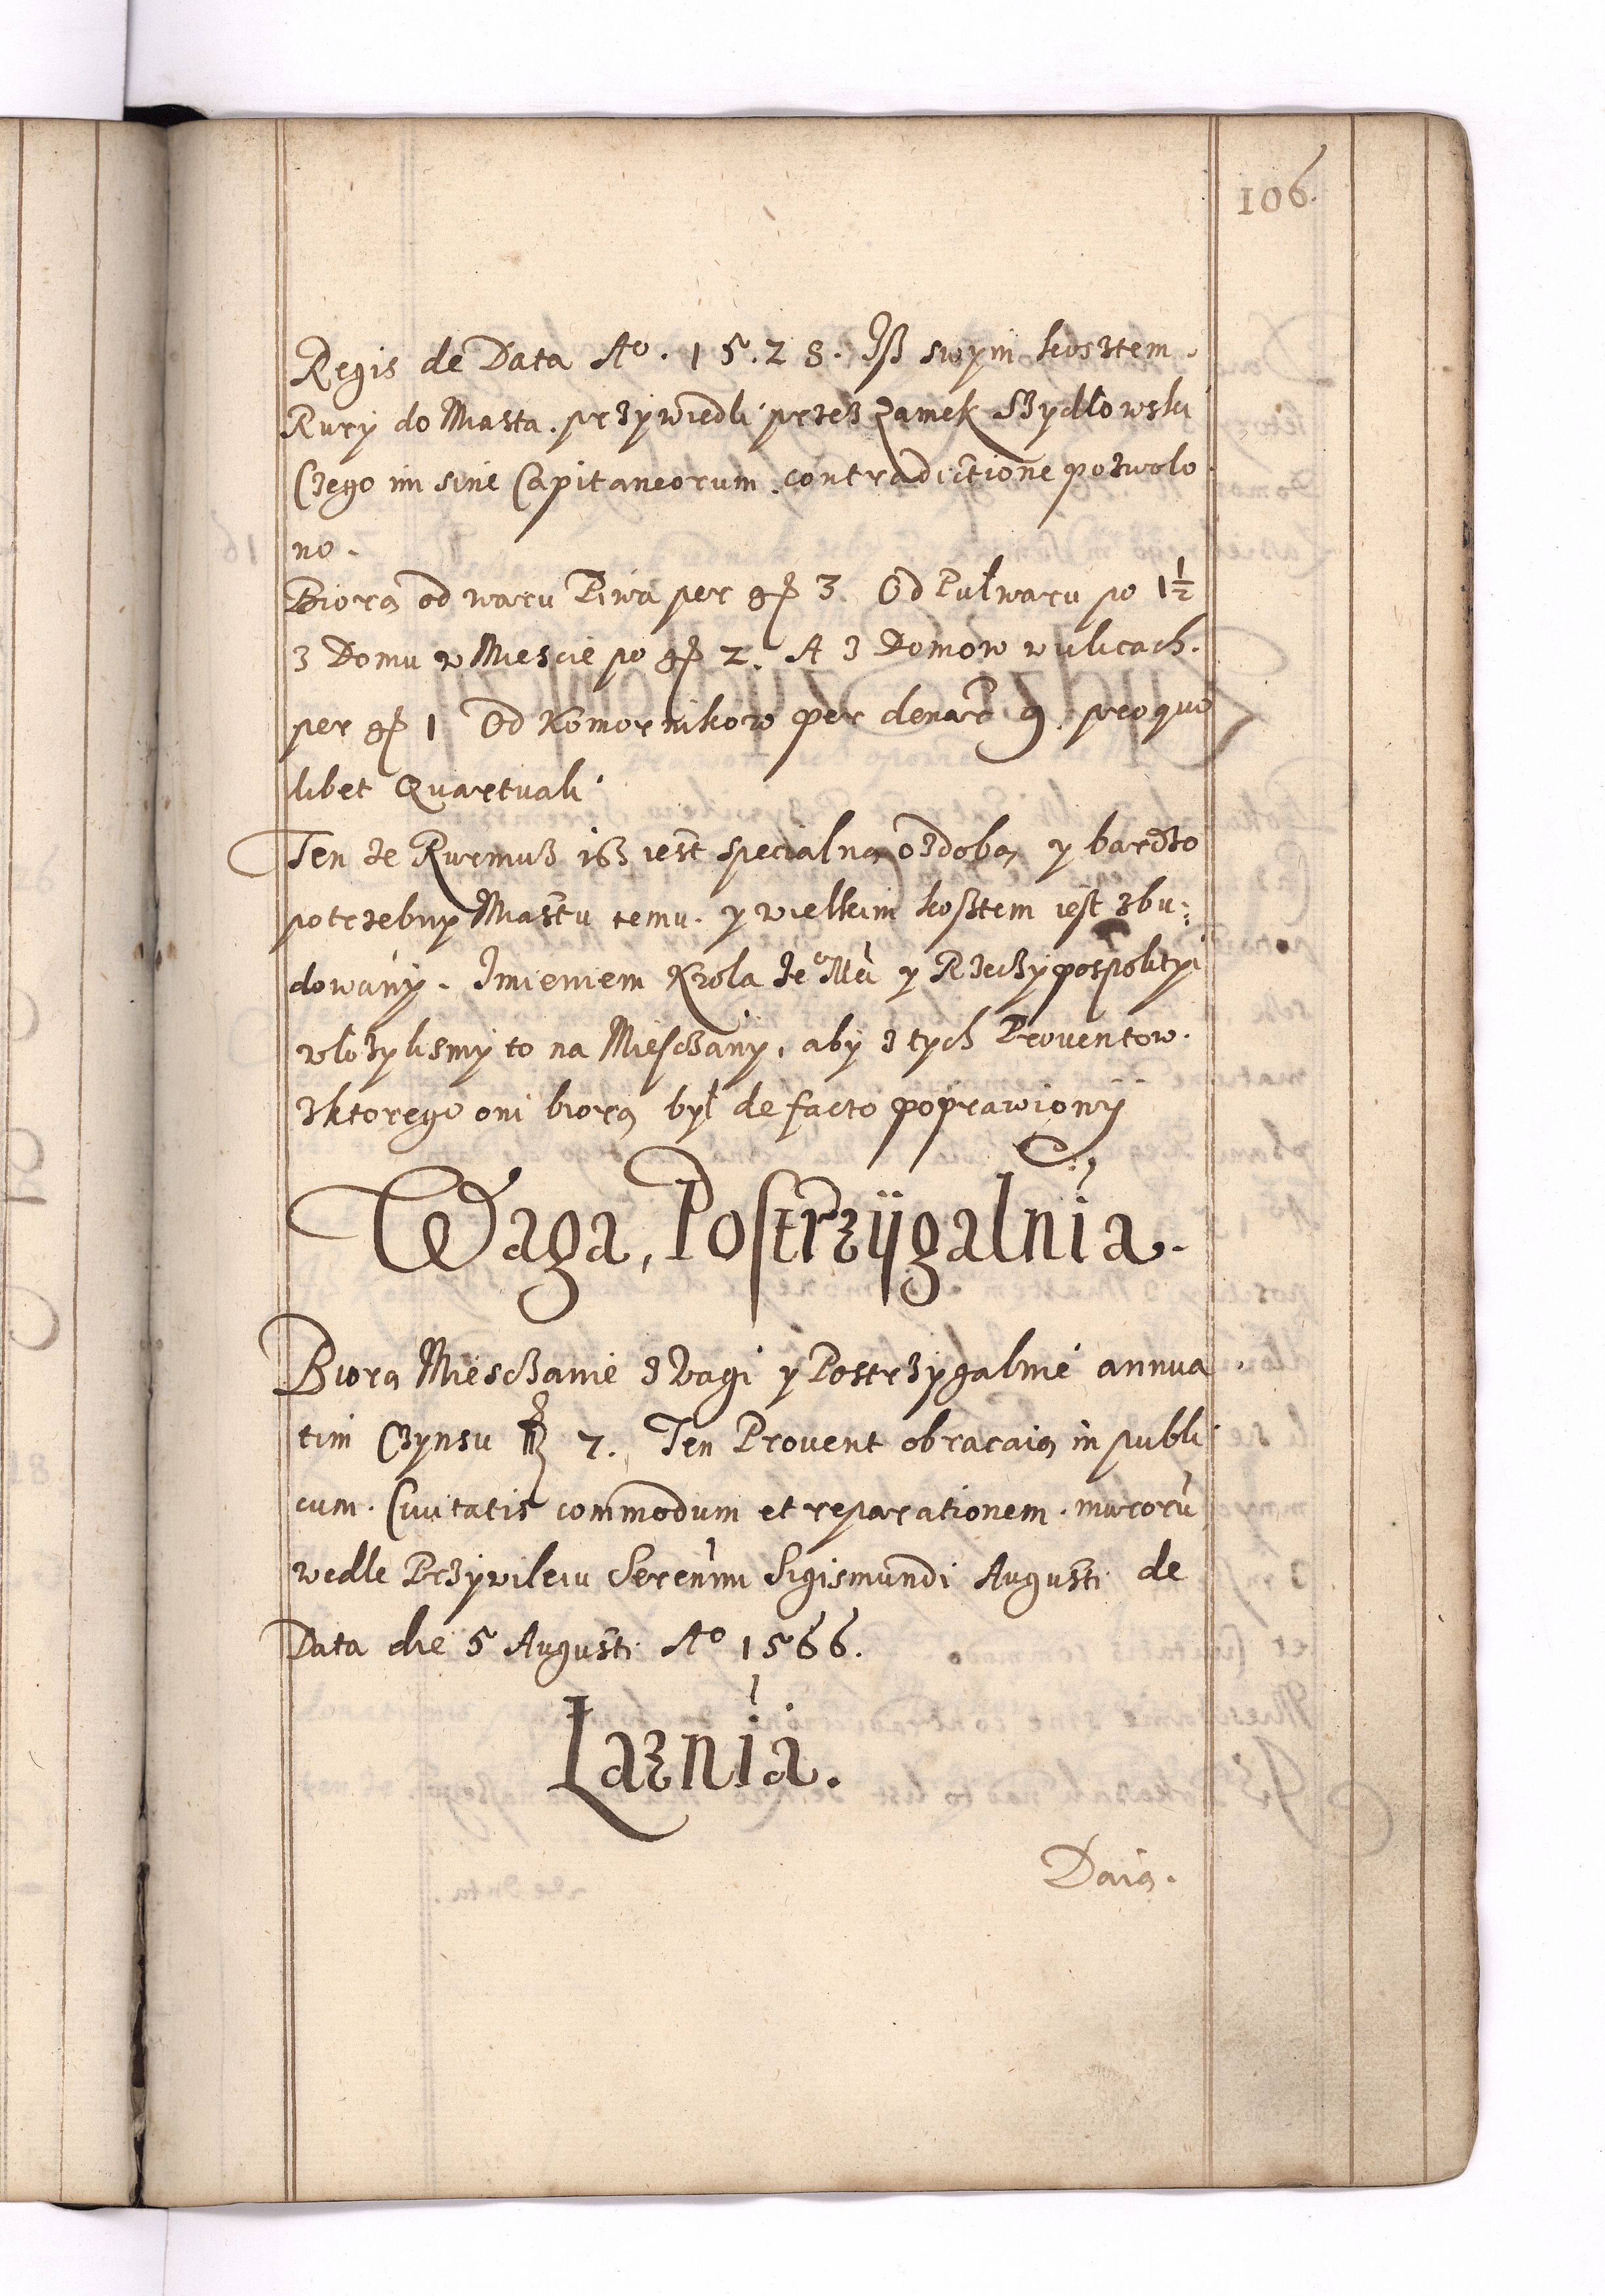 106.
Regis de Data Aº. 15.28. Iß swym kosztem.
Rury do Miasta. przywiedli przez zamek Szydłowski
Czego im sine Capitaneorum. contradictione pozwolo
no.
Biorą od waru Piwa per gr 3. Od Pułwaru po 1½
z Domu w Miescie po gr 2. A z Domow w ulicach.
per gr 1 Od Komornikow per denar 9. pro quo
libet Quartuali
Ten że Rurmuz isz iest specialną ozdobą y bardzo
potrzebny Miastu temu. y wielkim kosztem iest zbu:
dowany. Imieniem Krola Jeº Mci y Rzeczypospolityi
włozylismy to na Miesczany, aby z tych Proventow.
zktorego oni biorą był de facto poprawiony
Waga, Postrzygalnia.
Biorą Miesczanie z Vagi y Postrzygalnie annua
tim Czynsu 7. Ten Provent obracaią in publi
cum. Civitatis commodum et reparationem. muroru
wedle Przywileiu Serenimi Sigismundi Augusti de
Data die 5 Augusti Aº 1566.
Łaznia.
Daią.